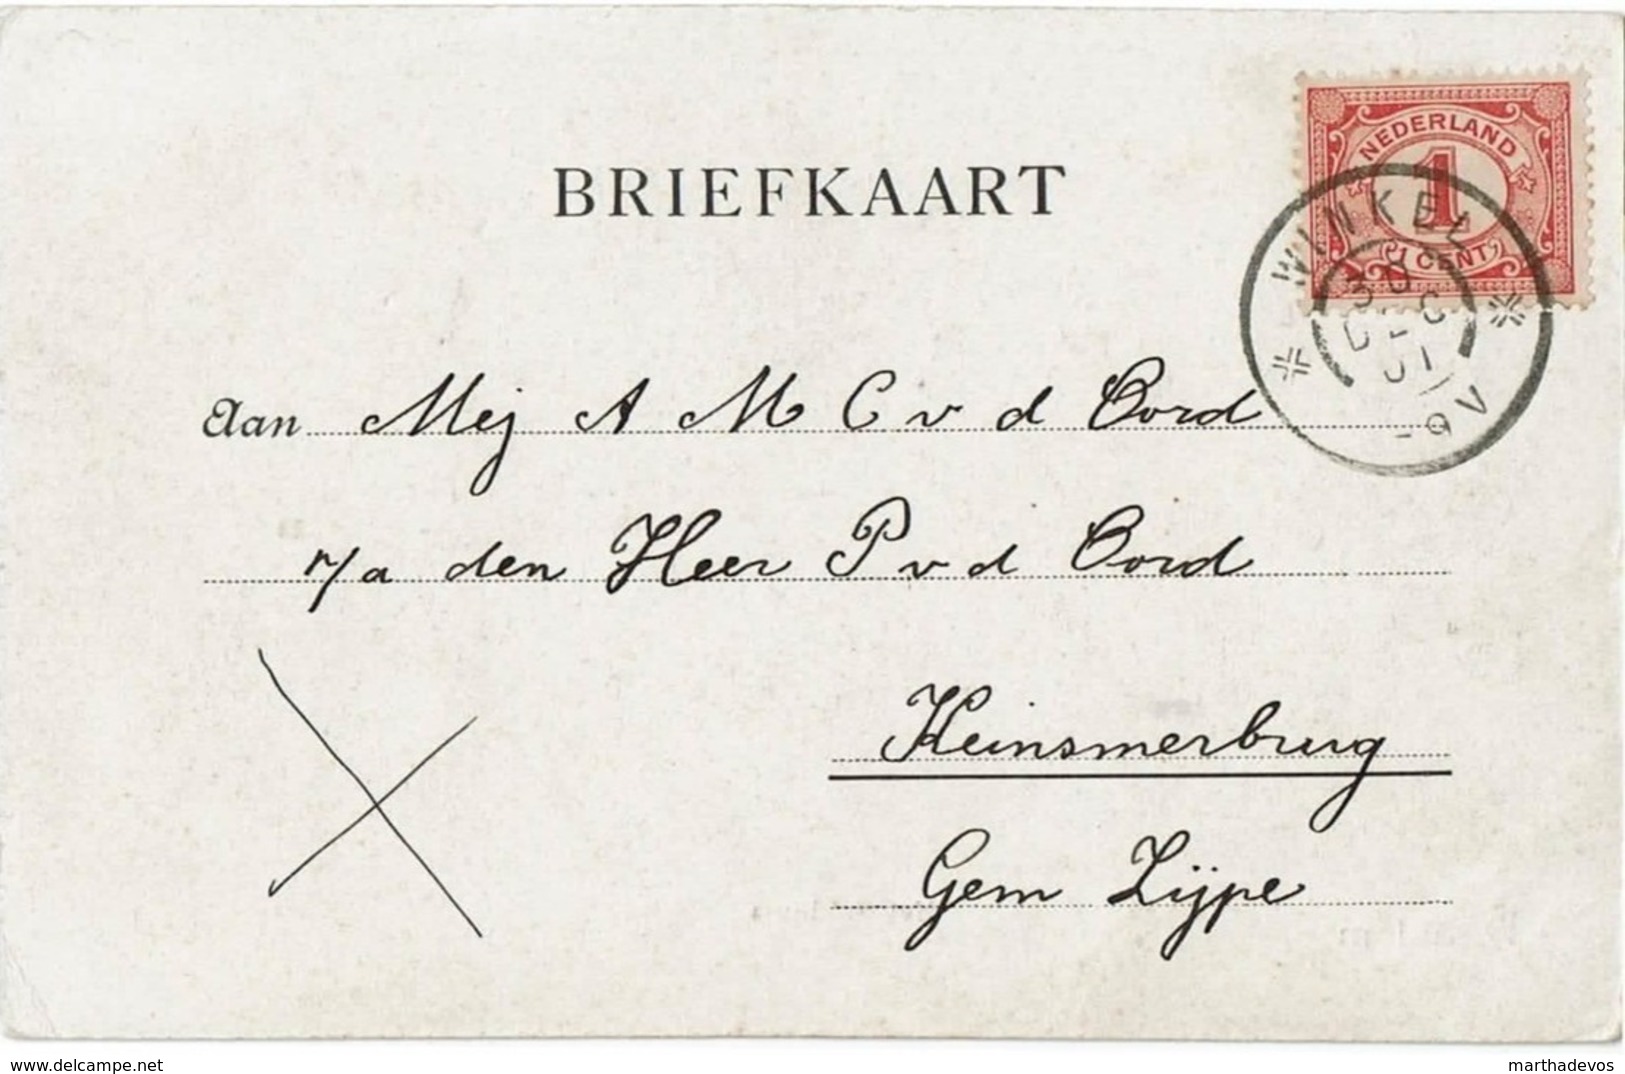 NEDERLAND
1
1 CENT
WINKEL
30
DEC
01
-9V
BRIEFKAART
Aan Mej A M C v d Oord
p/a den Heer P v d Oord
Keinsmerbrug
Gem Zijpe
delcampe.net
marthadevos